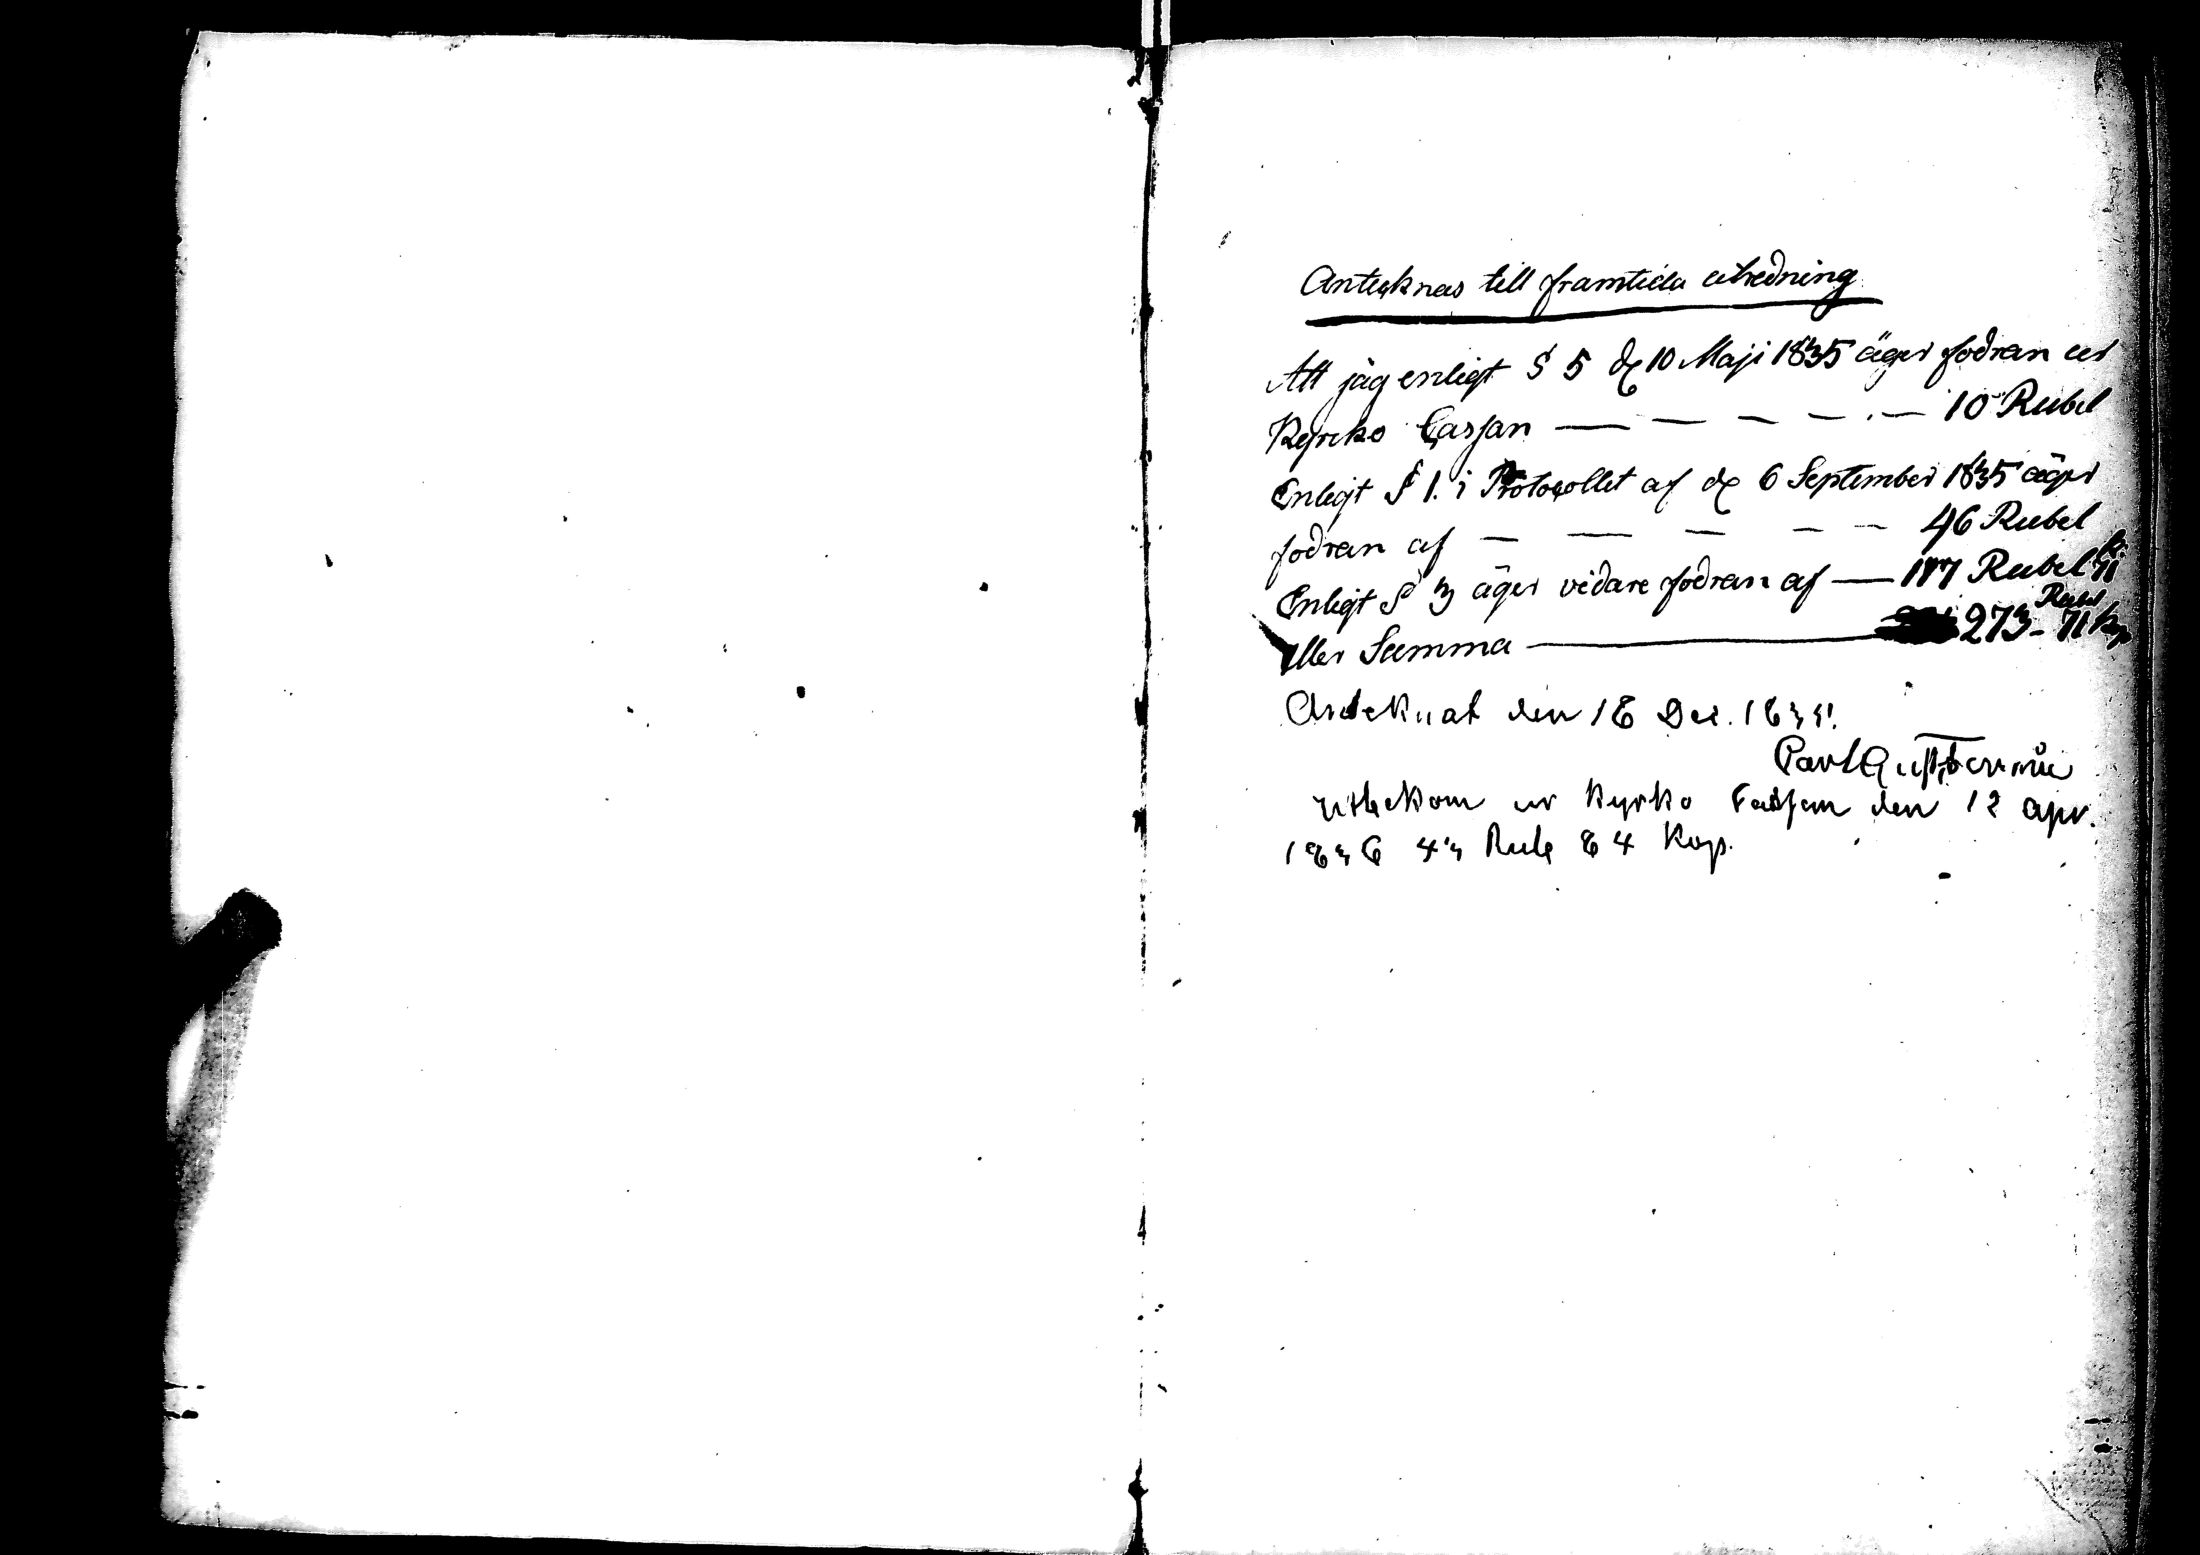 Antecknas till framtida utredning
Att jag enligt § 5 d 10 Maji 1835 äger fodran ur
Kyrko Cassan — — — — — 10 Rubel
Enligt § 1. i Protocollet af d 6 September 1835 äger
fodran af — — — — — 46 Rubel
Enligt § 3 äger vidare fodran af — Rubel 71
eller Summa — 273 Rubl 71 kop
Antecknat den 18 Dec. 1835.
Carl Gust.
Utbekom ur Kyrko Cassan den 12 Apr.
1836 43 Rub 84 Kop.